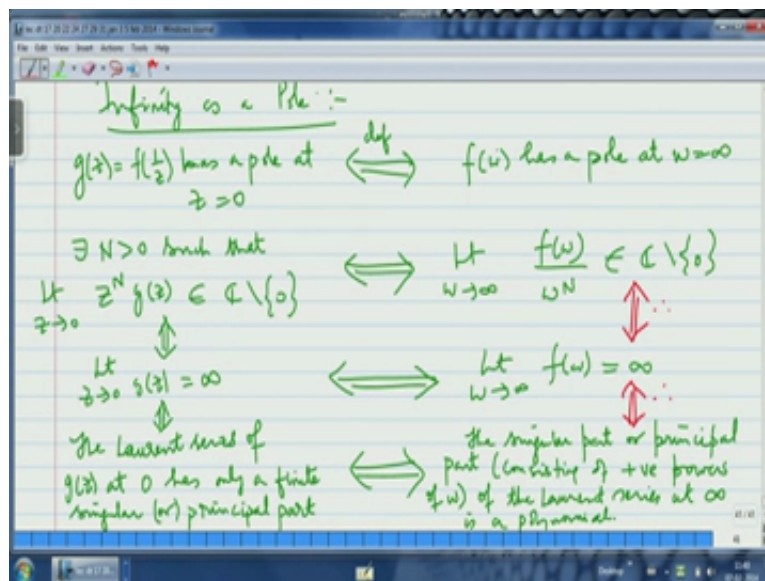 File Edit View Insert Actions Tools Help
Infinity as a Pole :-
g(z) = f(1/z) has a pole at z = 0 ⟺ def f(w) has a pole at w = ∞
∃ N > 0 such that
Lt z→0 z^N g(z) ∈ ℂ \ {0} ⟺ Lt w→∞ f(w)/w^N ∈ ℂ \ {0}
⇕ ⇕ ∴
Lt z→0 g(z) = ∞ ⟺ Lt w→∞ f(w) = ∞
⇕ ⇕ ∴
The Laurent series of
g(z) at 0 has only a finite
singular (or) principal part
⟺
the singular part or principal
part (consisting of +ve powers
of w) of the Laurent series at ∞
is a polynomial.
Desktop